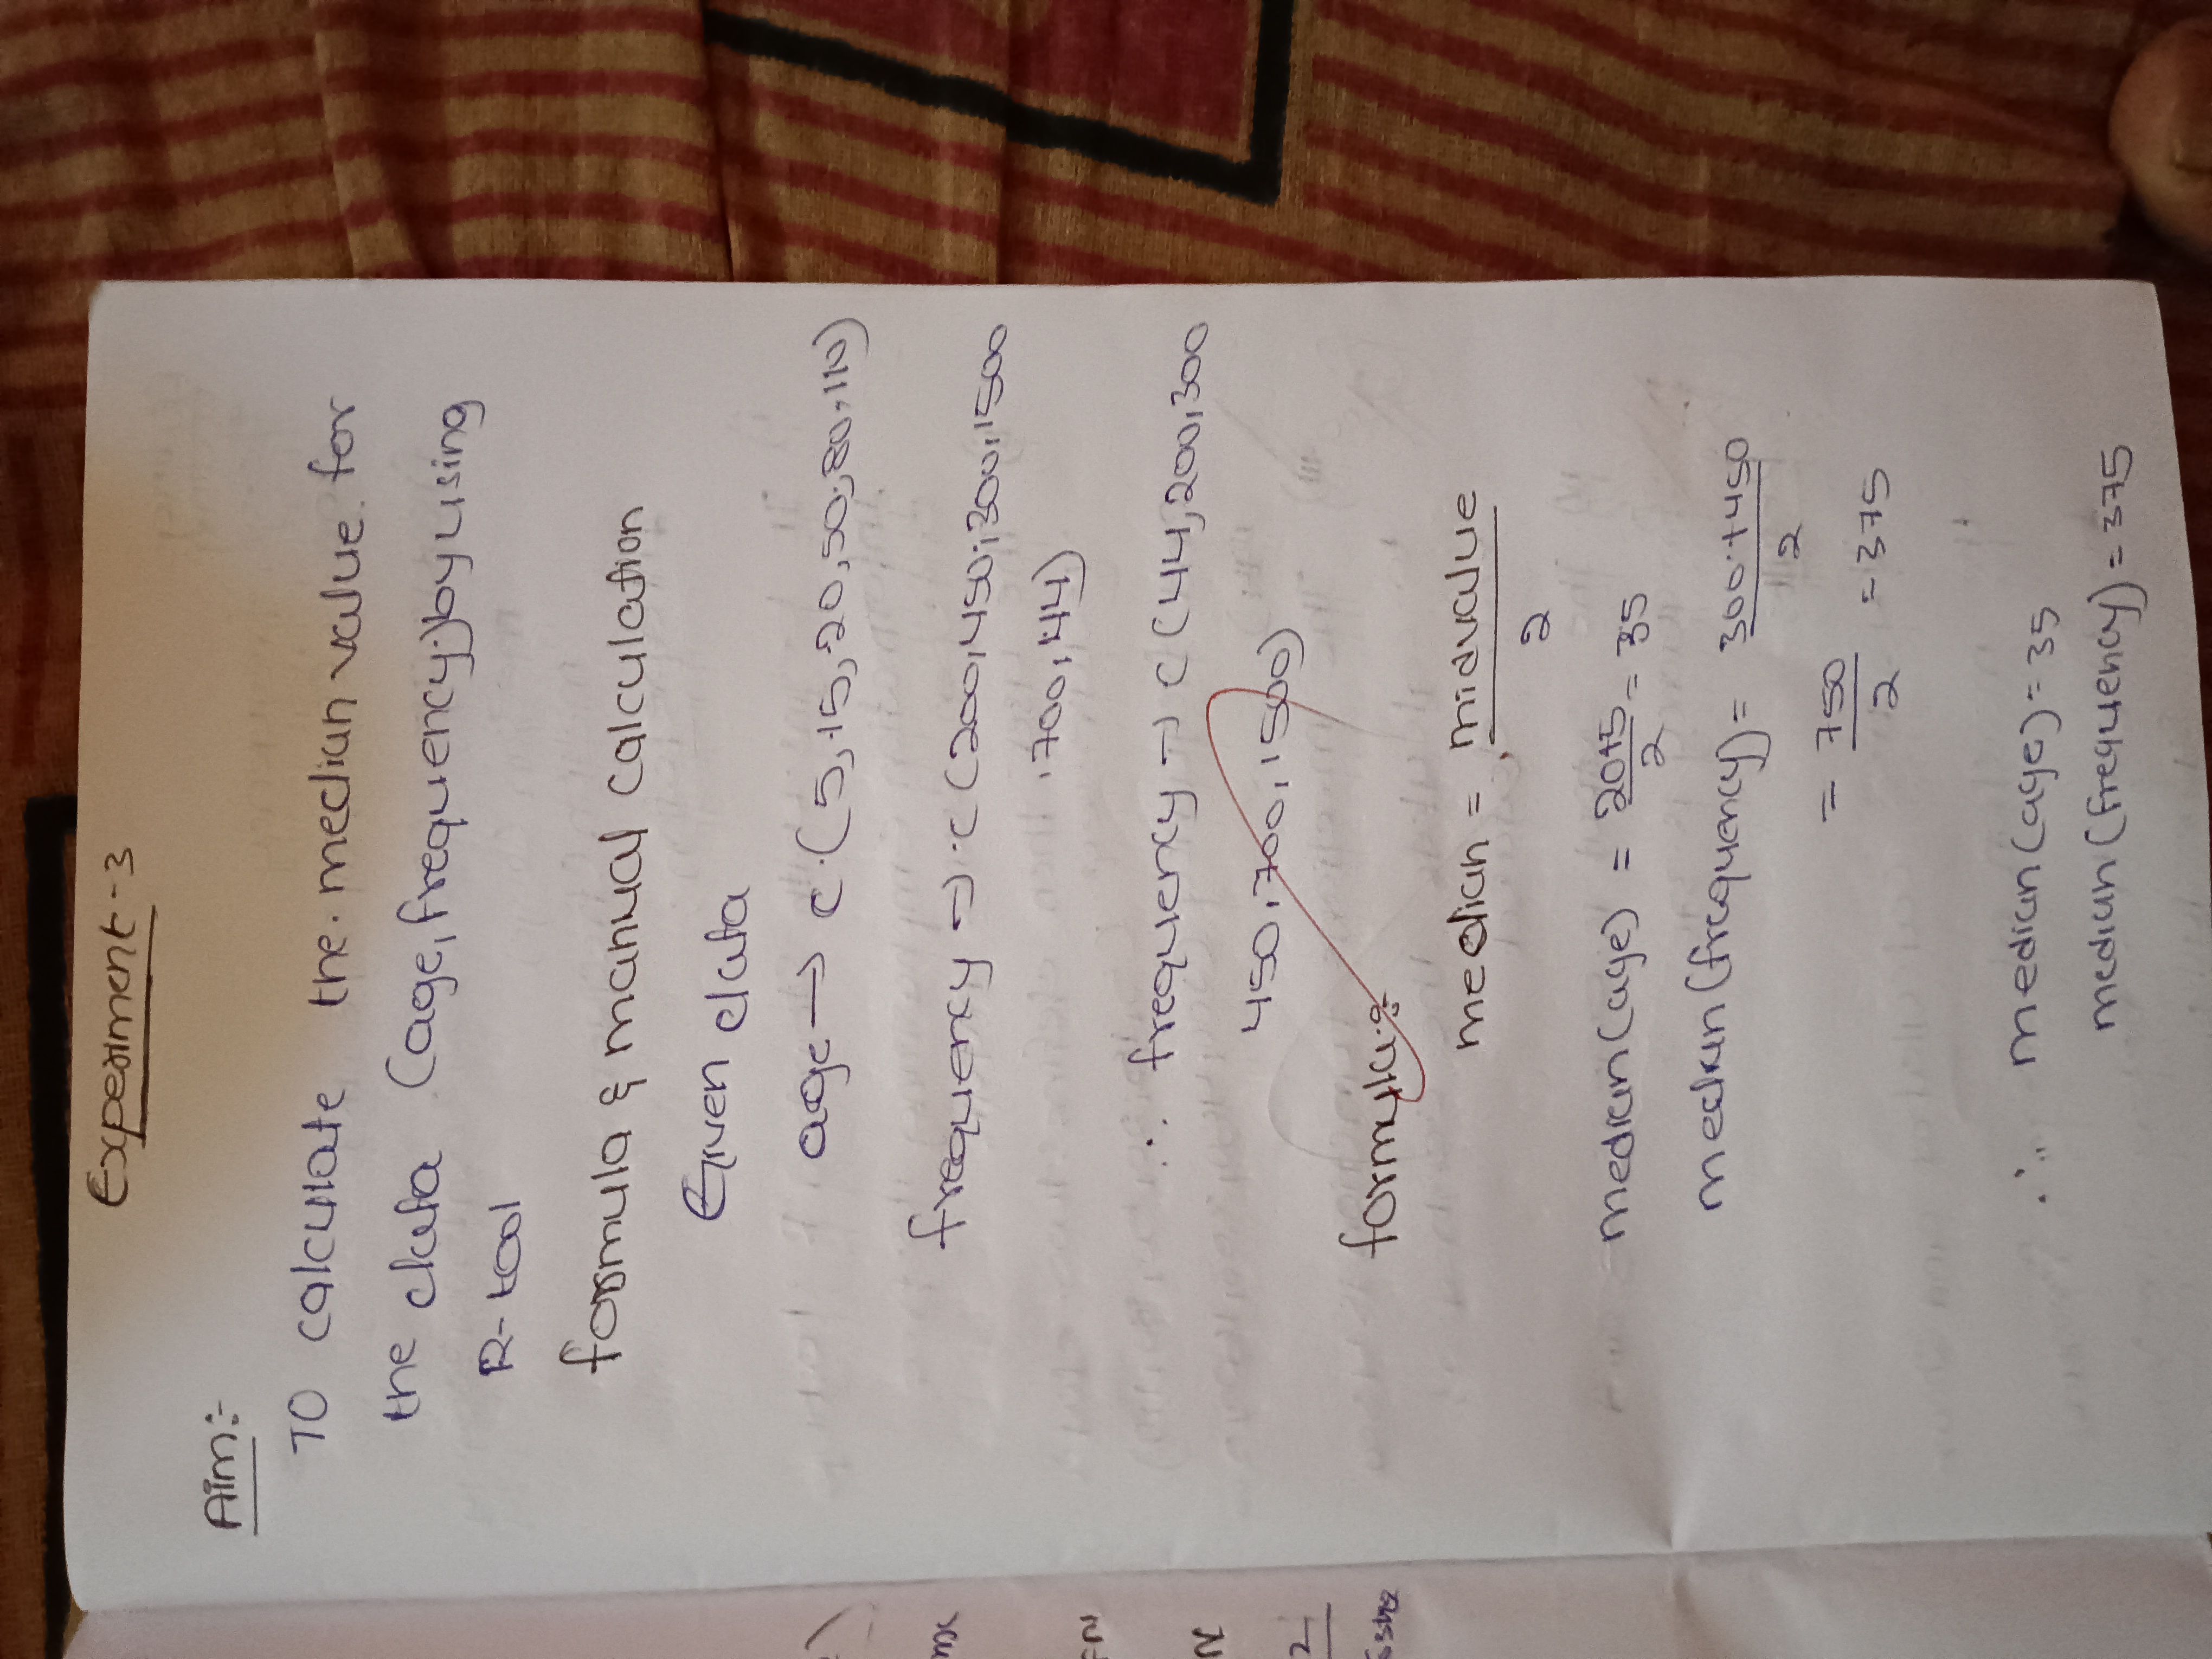 Experiment-3
Aim:-
TO calculate the median value for
the data (age, frequency) by using
R-tool
formula & manual calculation
Given data
age → c (5, 15, 20, 50, 80, 110)
frequency → c (200, 450, 300, 1500
, 700, 44)
∴ frequency → c (44, 200, 300
450, 700, 1500)
formula:-
median = midvalue
2
median (age) = 20+5 = 35
2
median (frequency) = 300+450
2
= 750 = 375
2
∴ median (age) = 35
median (frequency) = 375